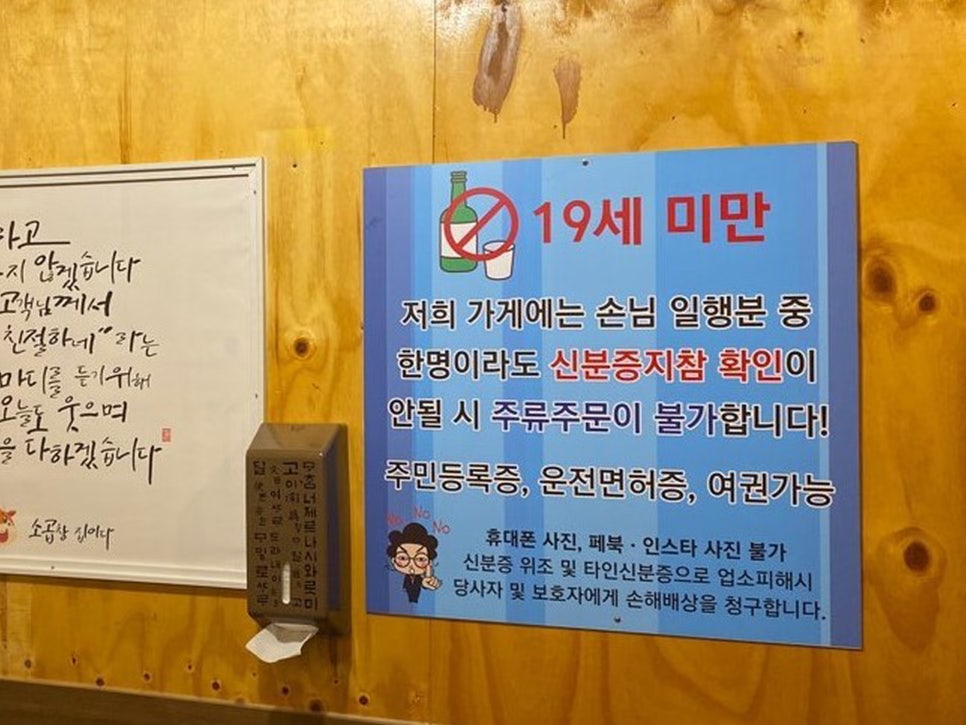 하고
지 않겠습니다
고객님께서
친절하네" 라는
마디를 듣기위해
오늘도 웃으며
을 다하겠습니다
소곱창 집이다
19세 미만
저희 가게에는 손님 일행분 중
한명이라도 신분증지참 확인이
안될 시 주류주문이 불가합니다!
주민등록증, 운전면허증, 여권가능
No No No
휴대폰 사진, 페북 · 인스타 사진 불가
신분증 위조 및 타인신분증으로 업소피해시
당사자 및 보호자에게 손해배상을 청구합니다.